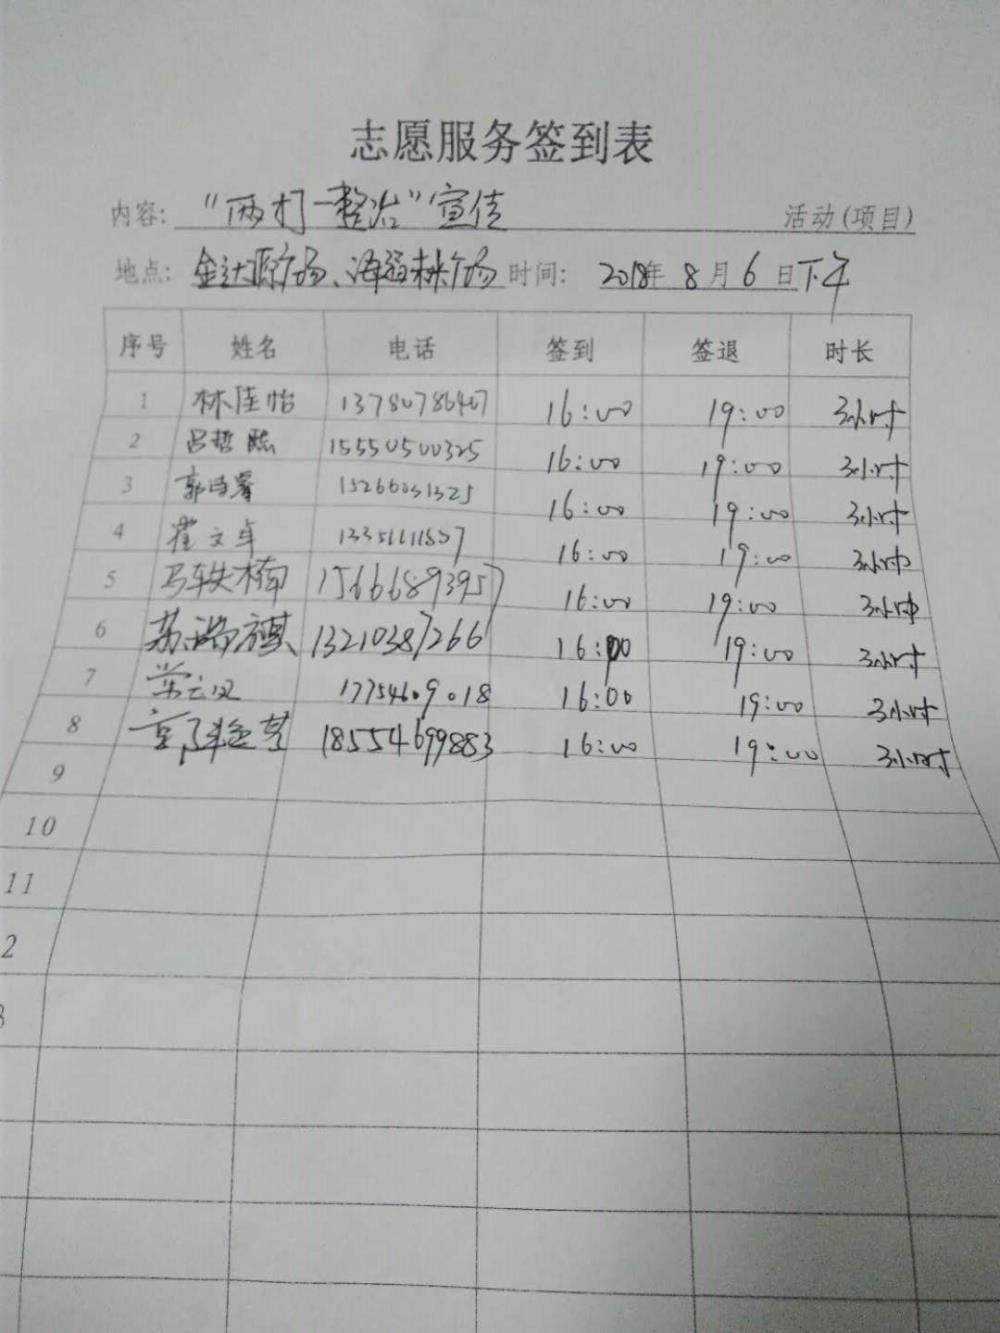 志愿服务签到表
内容: “两打一整治”宣传 活动(项目)
地点: 金达源广场、海福林广场 时间: 2018年 8 月 6 日下午
序号 姓名 电话 签到 签退 时长
1 林佳怡 13780786407 16:00 19:00 3小时
2 吕哲熙 15550500325 16:00 19:00 3小时
3 15266031325 16:00 19:00 3小时
4 崔文卓 13351111857 16:00 19:00 3小时
5 马轶楠 15666893957 16:00 19:00 3小时
6 苏瑞祺 13210387266 16:00 19:00 3小时
7 17754609018 16:00 19:00 3小时
8 18554699883 16:00 19:00 3小时
9
10
11
2
3